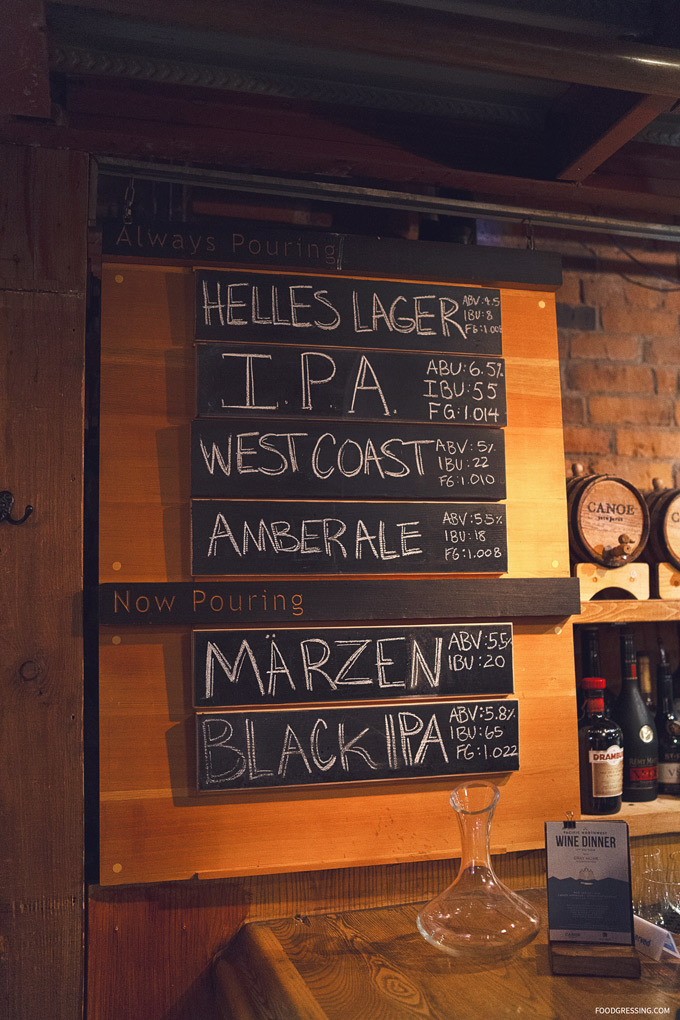 Always Pouring
HELLES LAGER
ABV:4.5
IBU:8
FG:1.008
I.P.A.
ABU:6.5%
IBU:55
FG:1.014
WEST COAST
ABV:5%
IBU:22
FG:1.010
AMBER ALE
ABV:5.5%
IBU:18
FG:1.008
Now Pouring
MÄRZEN
ABV:5.5%
IBU:20
BLACK IPA
ABV:5.8%
IBU:65
FG:1.022
CANOE
BREWPUB
C
DRAMBU
REMY M
V
PACIFIC NORTHWEST
WINE DINNER
FOODGRESSING.COM